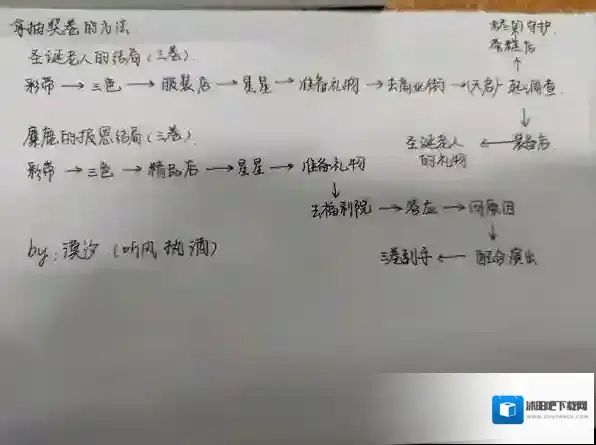 拿抽奖卷的方法
圣诞老人的结局(三卷)
彩带→三色→服装店→星星→准备礼物→去商业街→(天启)→起调查
蛋糕店
装备店
圣诞老人的礼物
麋鹿的报恩结局(三卷)
彩带→三色→精品店→星星→准备礼物
去福利院→答应→问原因
三卷到手←配合演出
by:漠汐(听风执酒)
沭阳吧下载网
WWW.SHUYANGE.COM